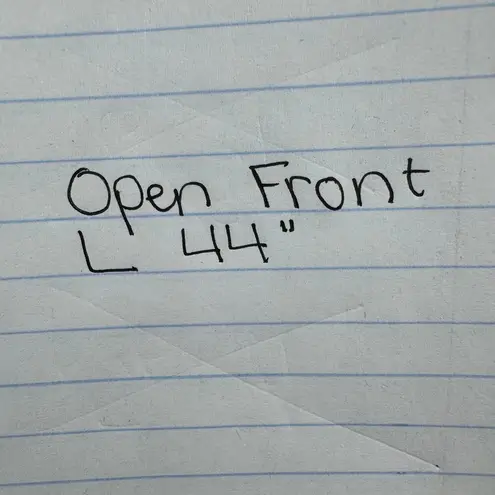 Open Front
L 44"